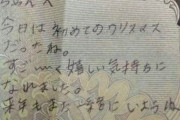 ちゃんへ
今日は初めてのクリスマス
だったね。
すごーく嬉しい気持ちに
なれました。
来年もまた一緒に いようね